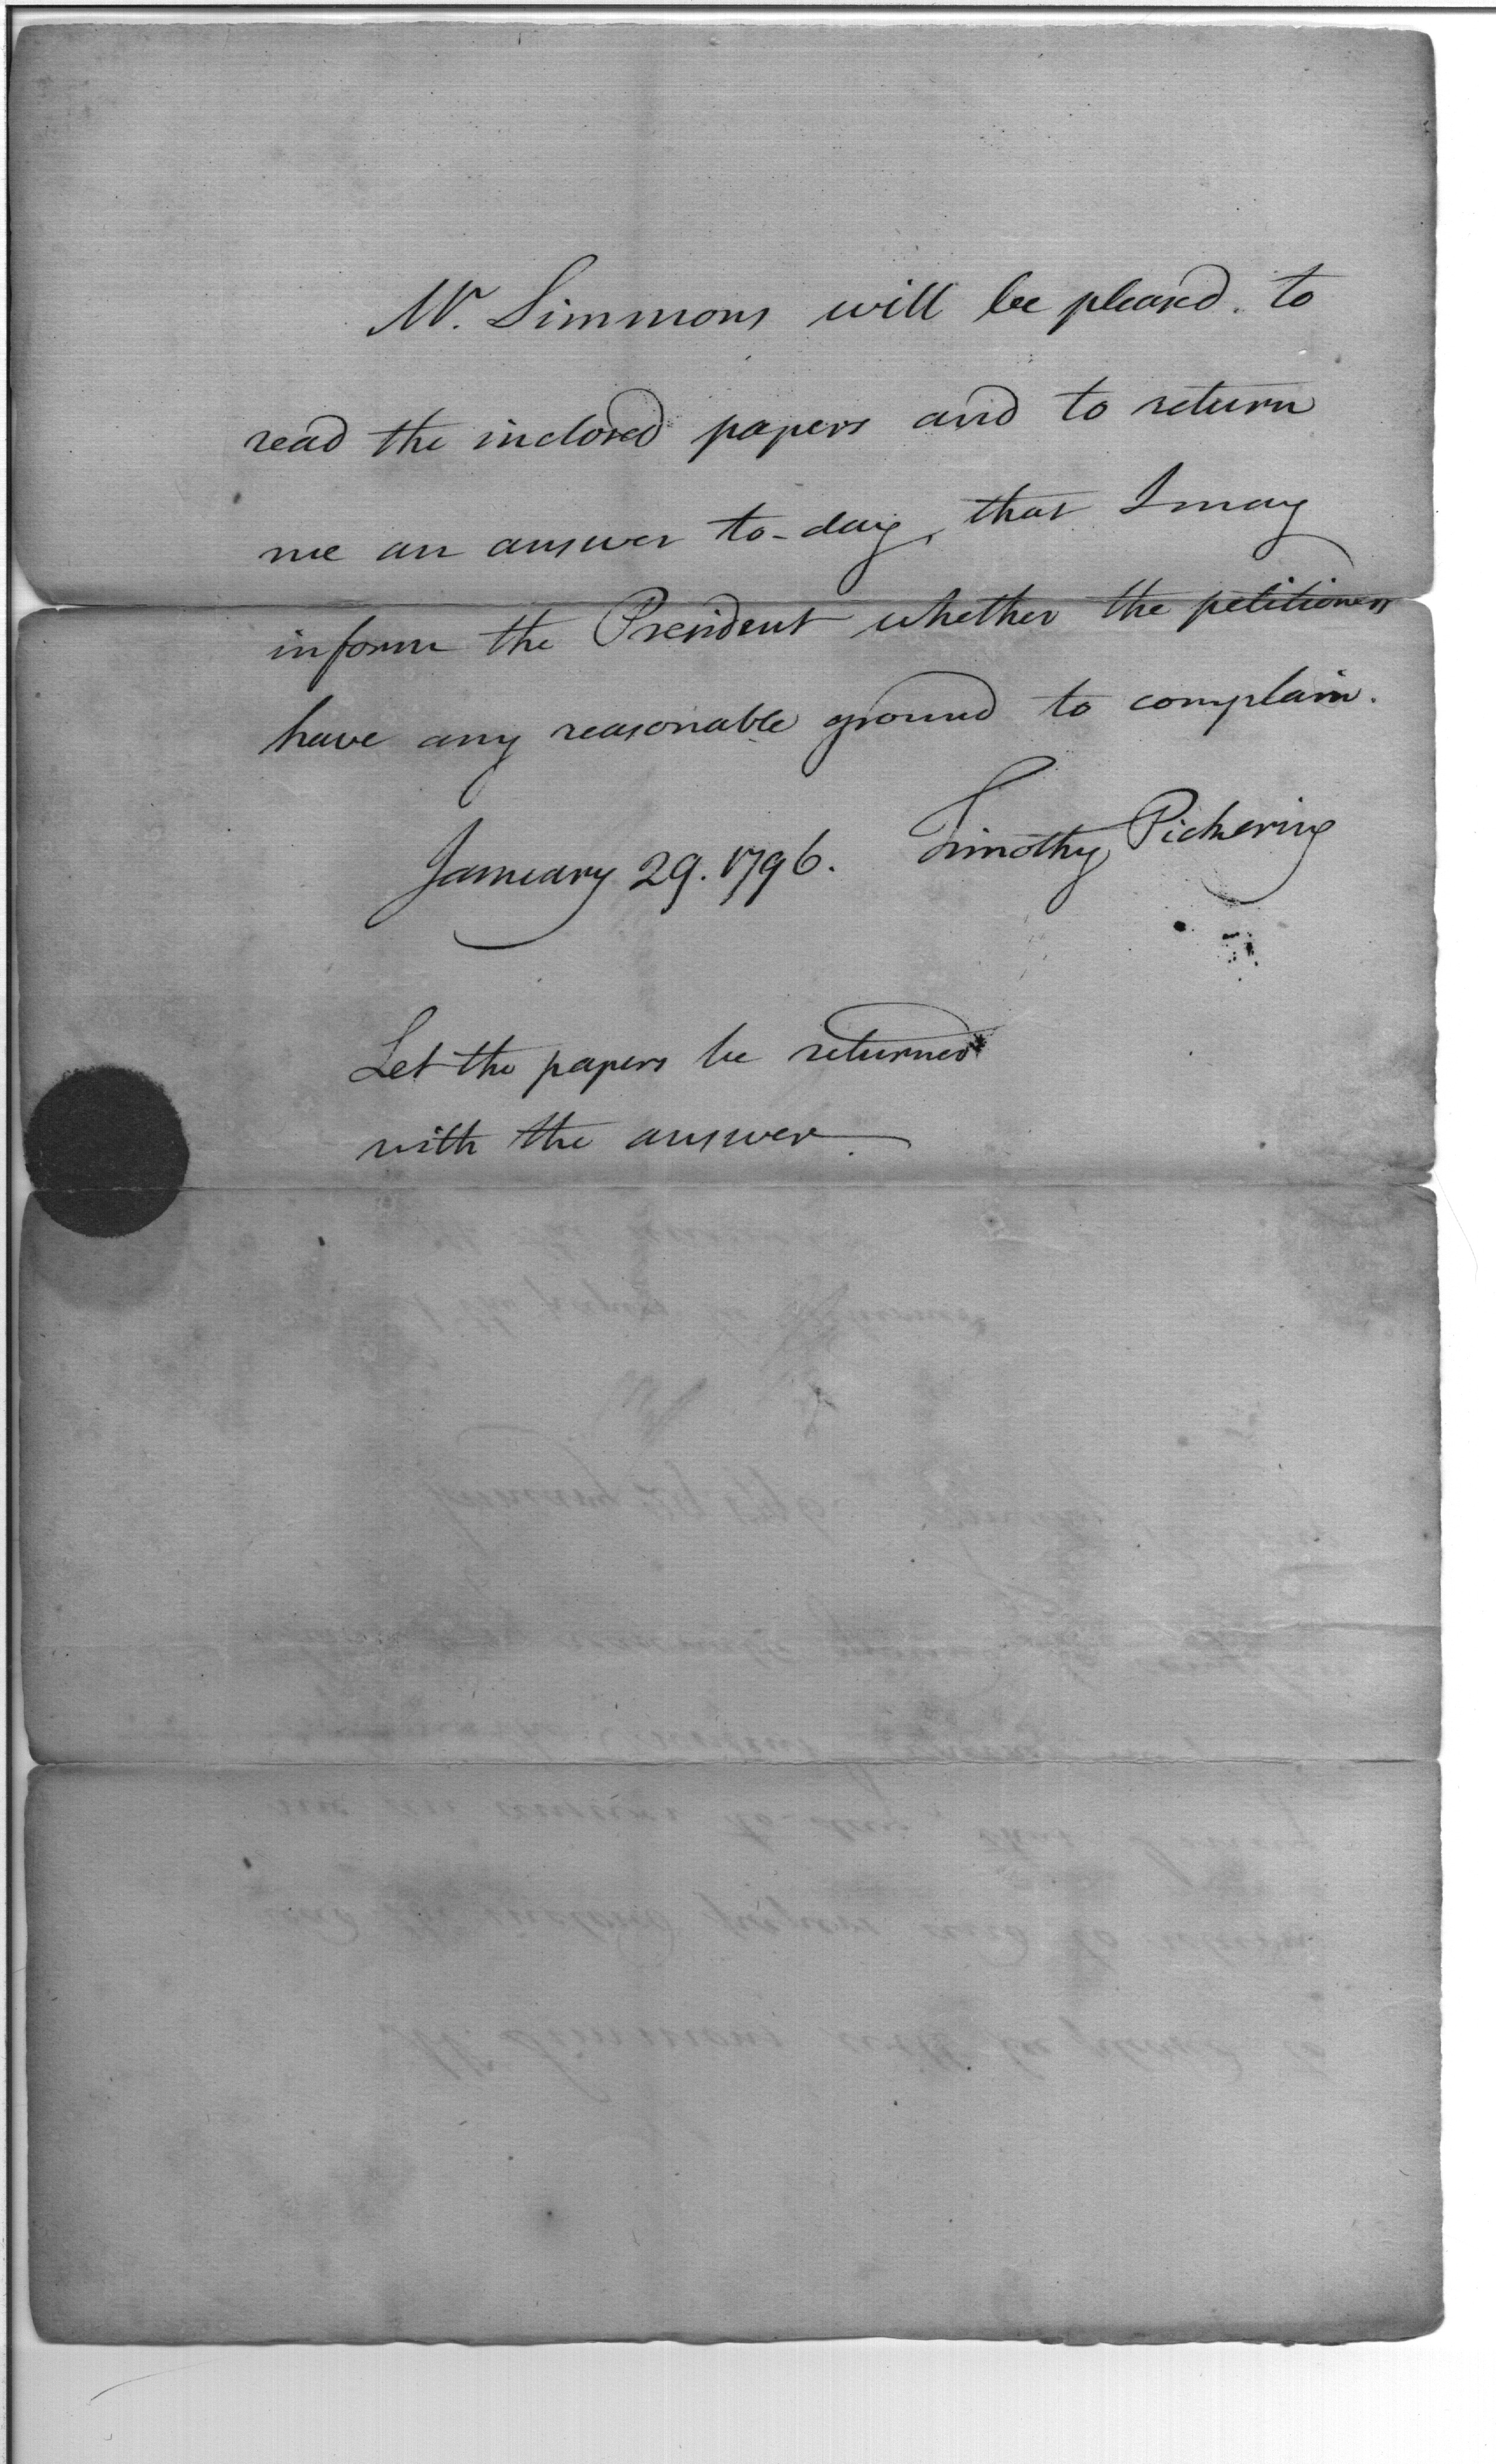 Mr. Simmons will be pleased to
read the inclosed papers and to return
me an answer to-day, that I may
inform the President whether the petitioners
have any reasonable ground to complain.
January 29. 1796. Timothy Pickering
Let the papers be returned
with the answer.